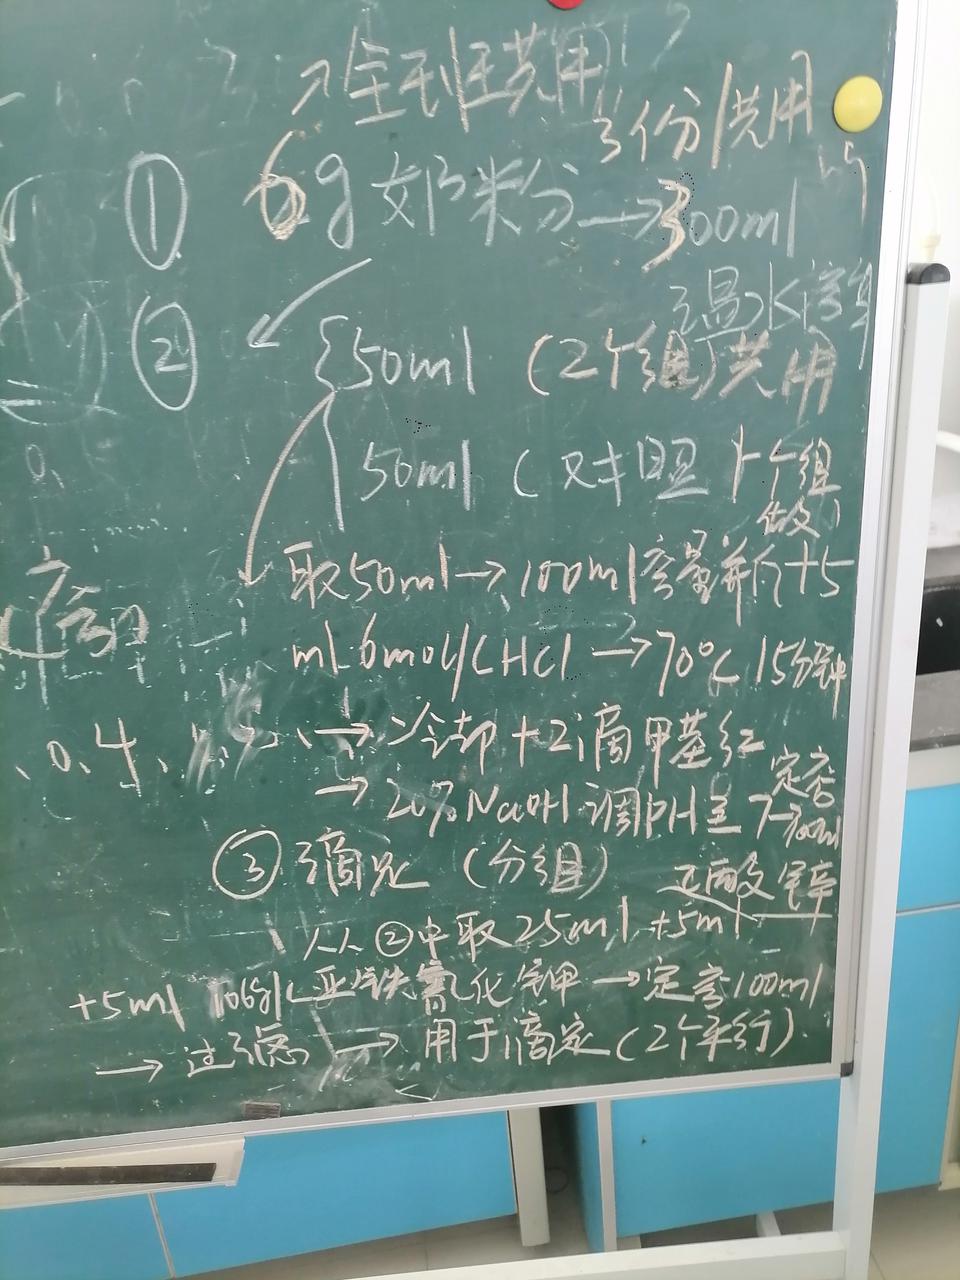 →全班共用
3份共用
① 6g奶粉→300ml
温水溶解
② 50ml (2个组)共用
50ml (对照 1个组
做)
取50ml→100ml容量瓶+5
ml 6mol/L HCl→70℃ 15分钟
、0、4、
→冷却+2滴甲基红
→20%NaOH调pH至7
定容
③ 滴定 (分组)
从②中取25ml +5ml
+5ml 106g/L亚铁氰化钾→定容100ml
→过滤→用于滴定(2个平行)